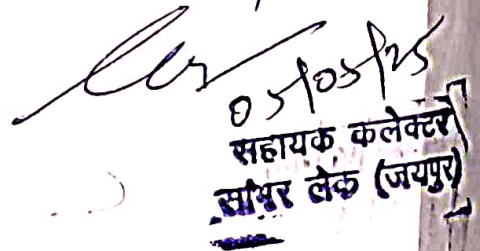 05/03/25
सहायक कलेक्टर
सांभर लेक (जयपुर)